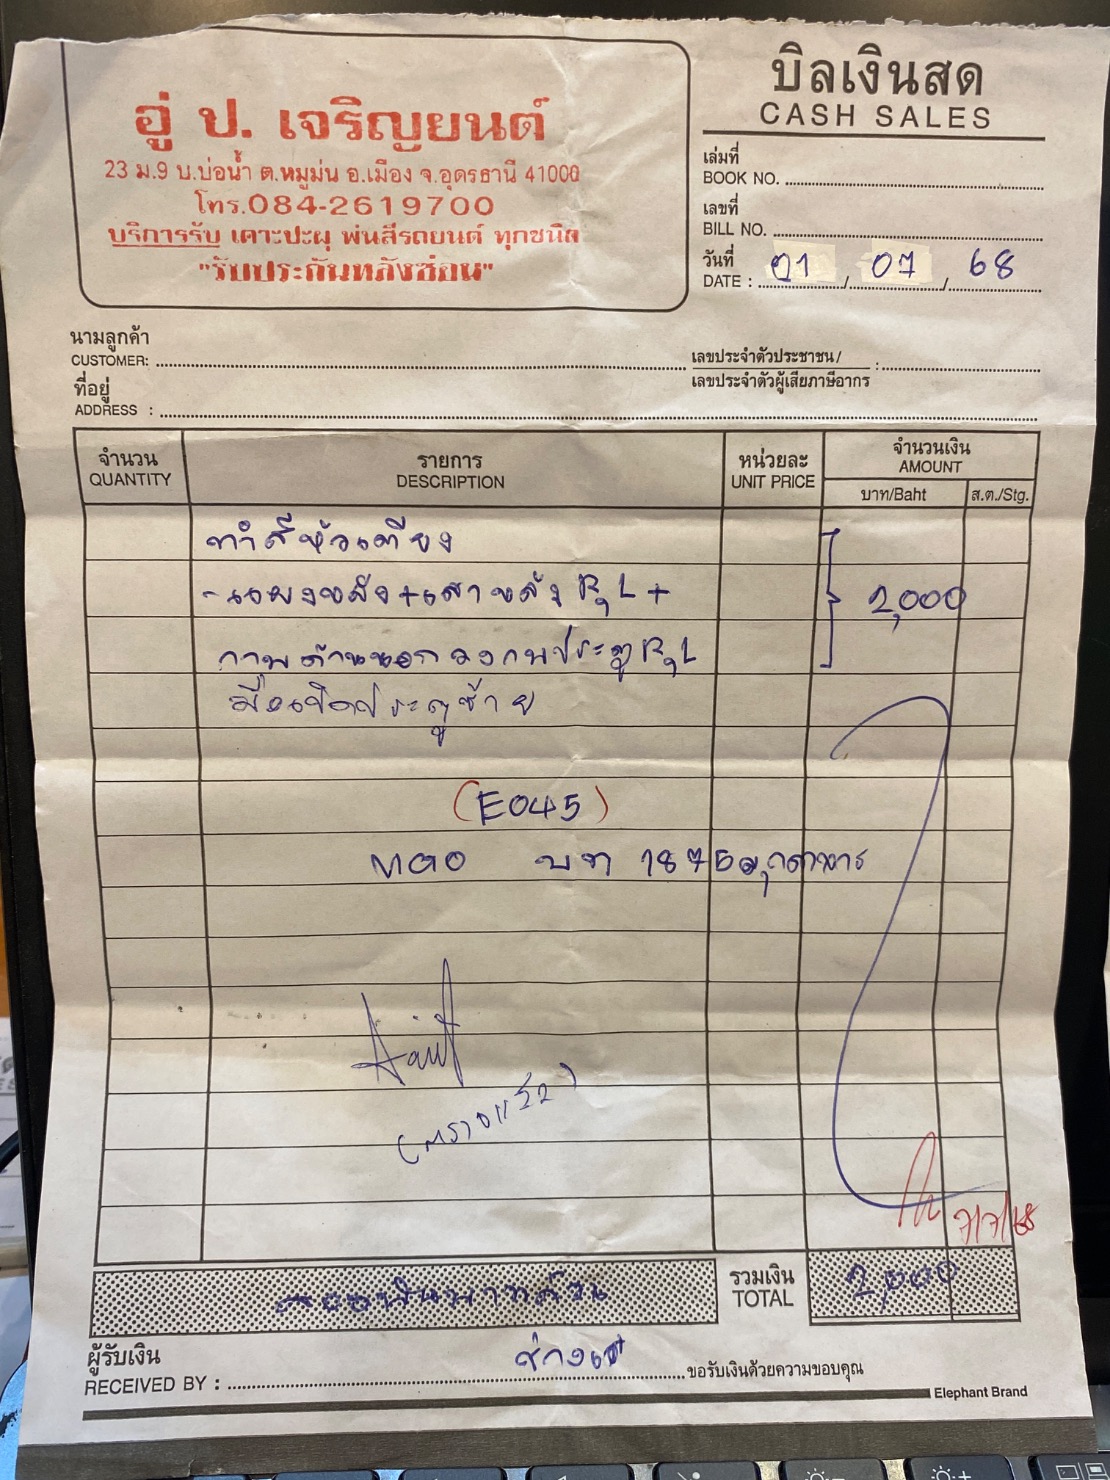 อู่ ป. เจริญยนต์
23 ม.9 บ.บ่อน้ำ ต.หมูม่น อ.เมือง จ.อุดรธานี 41000
โทร.084-2619700
บริการรับ เคาะปะผุ พ่นสีรถยนต์ ทุกชนิด
"รับประกันหลังซ่อม"
บิลเงินสด
CASH SALES
เล่มที่
BOOK NO.
เลขที่
BILL NO.
วันที่
DATE : 01 / 07 / 68
นามลูกค้า
CUSTOMER:
เลขประจำตัวประชาชน/
เลขประจำตัวผู้เสียภาษีอากร :
ที่อยู่
ADDRESS :
จำนวน
QUANTITY
รายการ
DESCRIPTION
หน่วยละ
UNIT PRICE
จำนวนเงิน
AMOUNT
บาท/Baht ส.ต./Stg.
ทำสีหัวเตียง
-แผงหลัง+เสาหลัง R,L +
2,000
กาบด้านนอก วงกบประตู R,L
มือเปิดประตูซ้าย
(E045)
บท 1875 มุกดาหาร
7/7/68
รวมเงิน
TOTAL
2,000
สองพันบาทถ้วน
ผู้รับเงิน
RECEIVED BY :
ขอรับเงินด้วยความขอบคุณ
Elephant Brand